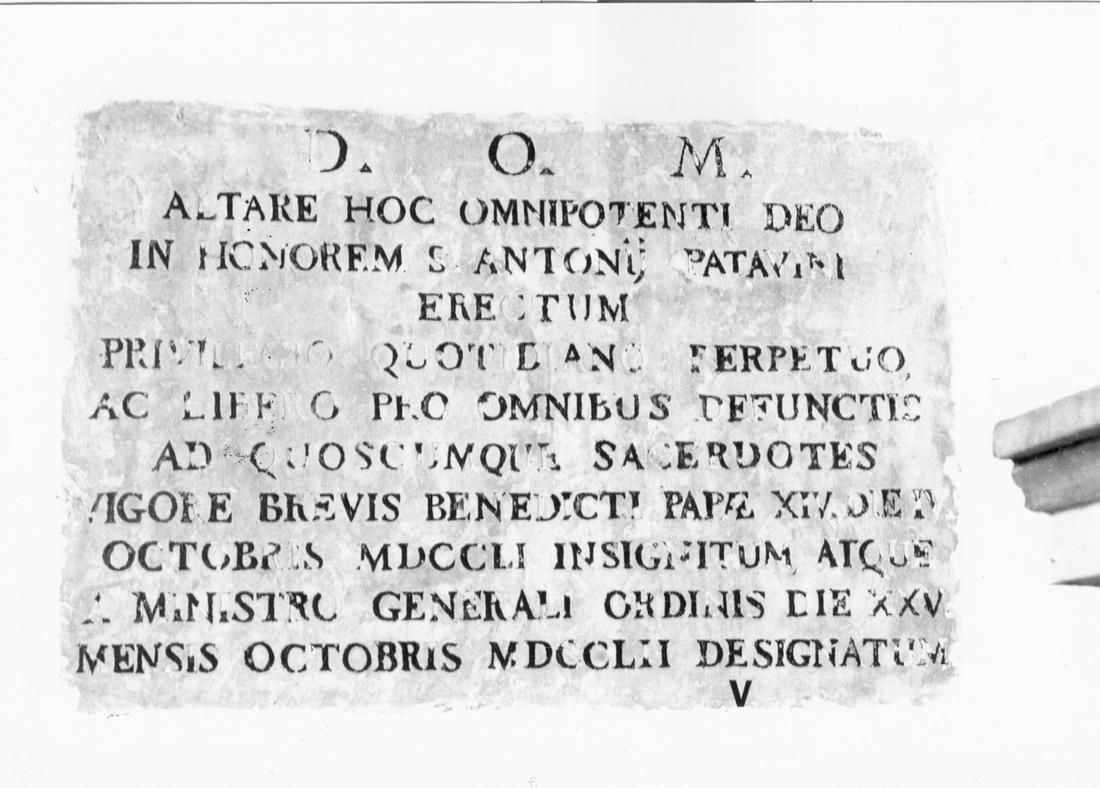 D. O. M.
ALTARE HOC OMNIPOTENTI DEO
IN HONOREM S. ANTONIJ PATAVINI
ERECTUM
PRIVILEGIO QUOTIDIANO PERPETUO,
AC LIBERO PRO OMNIBUS DEFUNCTIS
AD QUOSCUNQUE SACERDOTES
VIGORE BREVIS BENEDICTI PAPÆ XIV. DIE IV
OCTOBRIS MDCCLI INSIGNITUM, ATQUE
A MINISTRO GENERALI ORDINIS DIE XXV
MENSIS OCTOBRIS MDCCLII DESIGNATUM
V